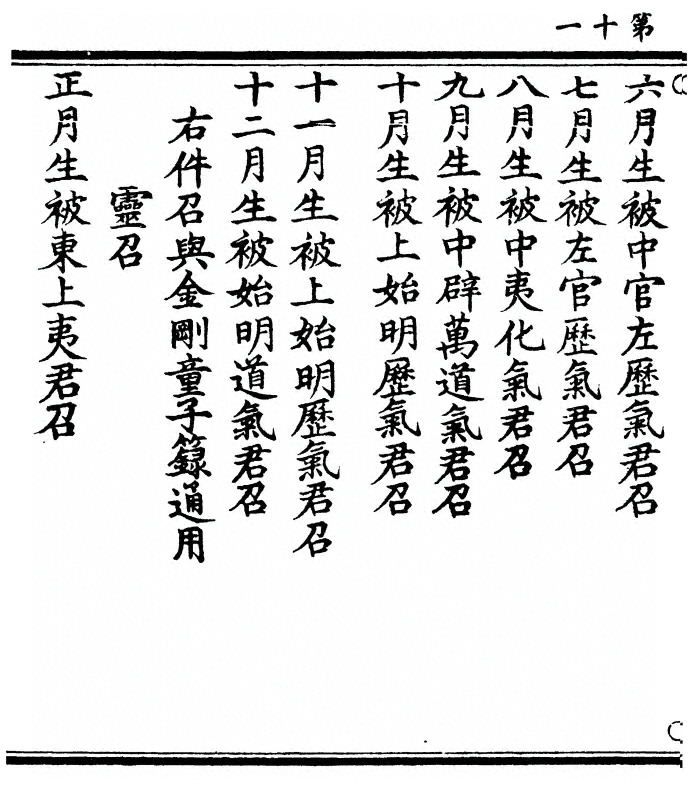 第十一
六月生被中官左歷氣君召
七月生被左官歷氣君召
八月生被中夷化氣君召
九月生被中辟萬道氣君召
十月生被上始明歷氣君召
十一月生被上始明歷氣君召
十二月生被始明道氣君召
右件召與金剛童子籙通用
靈召
正月生被東上夷君召